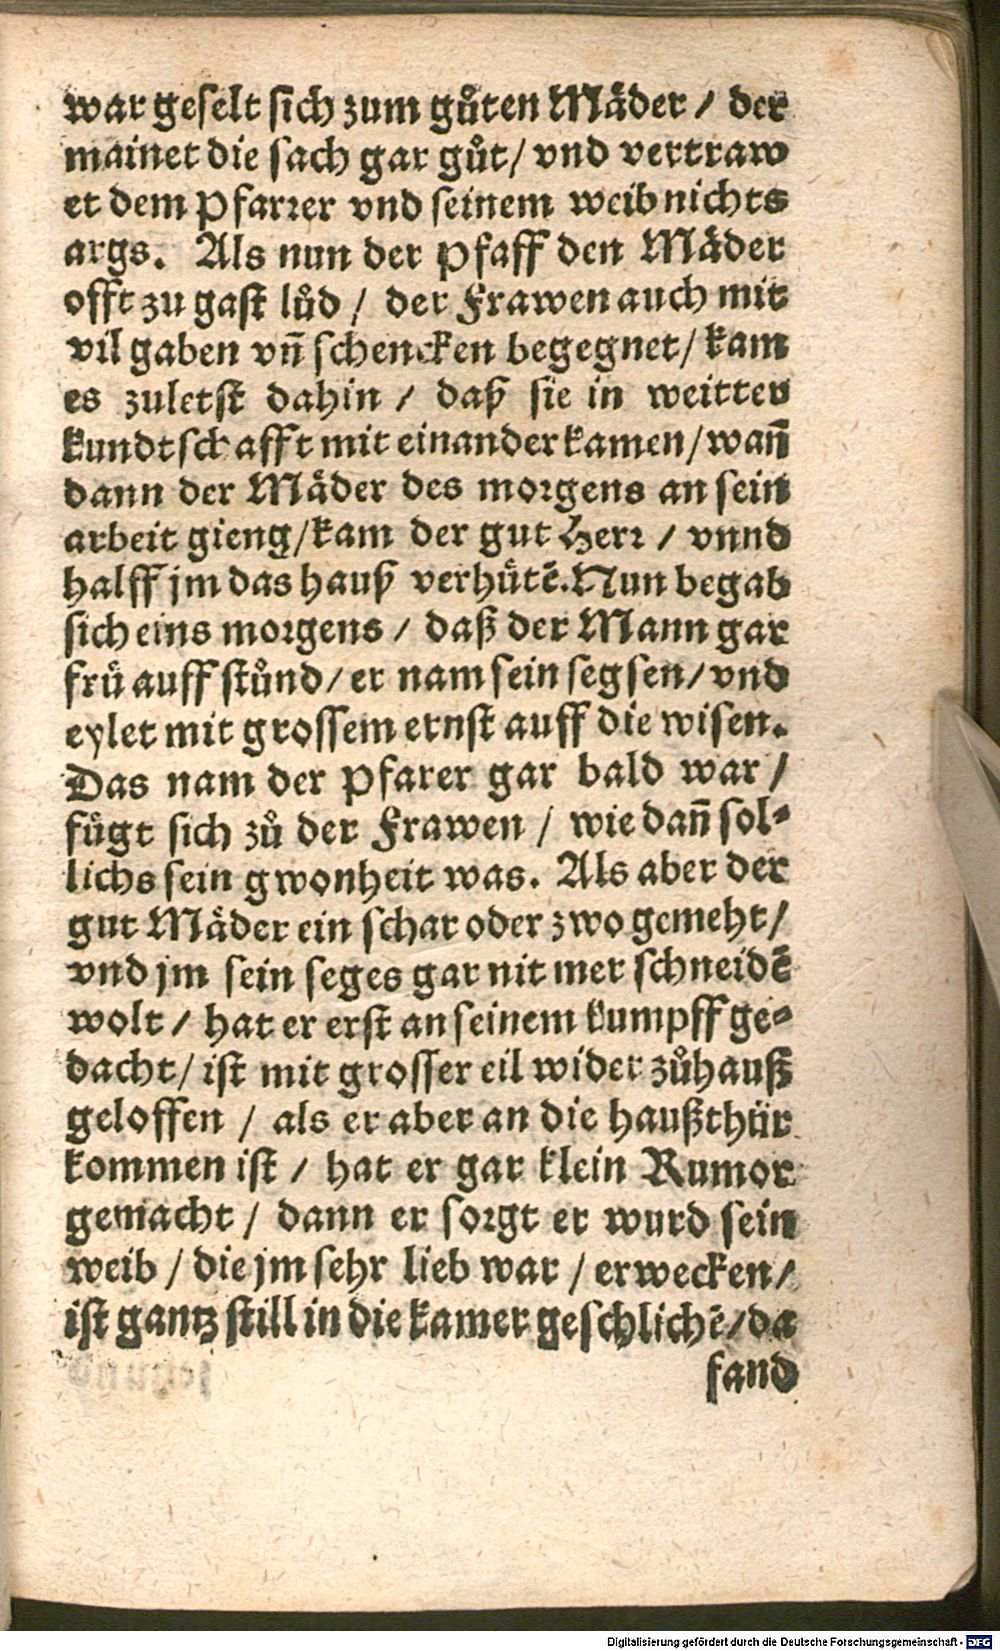 war geselt sich zum gůten Mäder / der
mainet die sach gar gůt / vnd vertraw
et dem Pfarrer vnd seinem weib nichts
args. Als nun der Pfaff den Mäder
offt zu gast lůd / der Frawen auch mit
vil gaben vn̄ schencken begegnet / kam
es zuletst dahin / daß sie in weitter
kundtschafft mit einander kamen / wan̄
dann der Mäder des morgens an sein
arbeit gieng / kam der gut Herr / vnnd
halff jm das hauß verhütē. Nun begab
sich eins morgens / daß der Mann gar
frü auff stůnd / er nam sein segsen / vnd
eylet mit grossem ernst auff die wisen.
Das nam der Pfarer gar bald war /
fügt sich zů der Frawen / wie dan̄ sol-
lichs sein gwonheit was. Als aber der
gut Mäder ein schar oder zwo gemeht /
vnd jm sein seges gar nit mer schneidē
wolt / hat er erst an seinem kumpff ge-
dacht / ist mit grosser eil wider zůhauß
geloffen / als er aber an die haußthür
kommen ist / hat er gar klein Rumor
gemacht / dann er sorgt er wurd sein
weib / die jm sehr lieb war / erwecken /
ist gantz still in die kamer geschlichē / da
fand
Digitalisierung gefördert durch die Deutsche Forschungsgemeinschaft - DFG